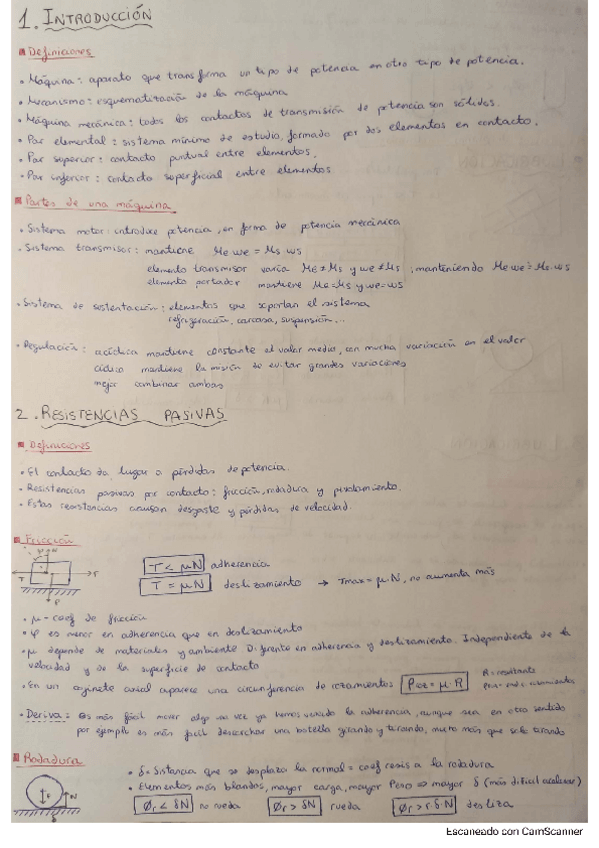 1. INTRODUCCIÓN
Definiciones
• Máquina: aparato que transforma un tipo de potencia en otro tipo de potencia.
• Mecanismo: esquematización de la máquina
• Máquina mecánica: todos los contactos de transmisión de potencia son sólidos.
• Par elemental: sistema mínimo de estudio, formado por dos elementos en contacto.
• Par superior: contacto puntual entre elementos.
• Par inferior: contacto superficial entre elementos
Partes de una máquina
• Sistema motor: introduce potencia, en forma de potencia mecánica
• Sistema transmisor: mantiene Me we = Ms. ws
elemento transmisor varía Me≠Ms y we≠ , manteniendo Me we = Ms. ws
elemento portador mantiene Me=Ms y we=ws
• Sistema de sustentación: elementos que soportan el sistema
refrigeración, carcasa, suspensión,...
• Regulación: acíclica mantiene constante el valor medio, con mucha variación en el valor
cíclico mantiene la misión de evitar grandes variaciones
mejor combinar ambas
2. RESISTENCIAS PASIVAS
Definiciones
• El contacto da lugar a pérdidas de potencia.
• Resistencias pasivas por contacto: fricción, rodadura y pivotamiento.
• Estas resistencias causan desgaste y pérdidas de velocidad.
Fricción
T < μN adherencia
T = μN deslizamiento → Tmax = μ·N, no aumenta más
N
T
F
P
• μ = coef de fricción
• φ es menor en adherencia que en deslizamiento
• μ depende de materiales y ambiente. Diferente en adherencia y deslizamiento. Independiente de la
velocidad y de la superficie de contacto
• En un cojinete axial aparece una circunferencia de rozamientos = μ · R R = resultante
• Deriva: es más fácil mover algo una vez ya hemos vencido la adherencia, aunque sea en otro sentido
por ejemplo es más fácil descorchar una botella girando y tirando, mucho más que solo tirando
Rodadura
• δ = distancia que se desplaza la normal = coef resis a la rodadura
• Elementos más blandos, mayor carga, mayor Peso ⇒ mayor δ (más difícil acelerar)
< δN no rueda > δN rueda > r δ N desliza
N
Escaneado con CamScanner